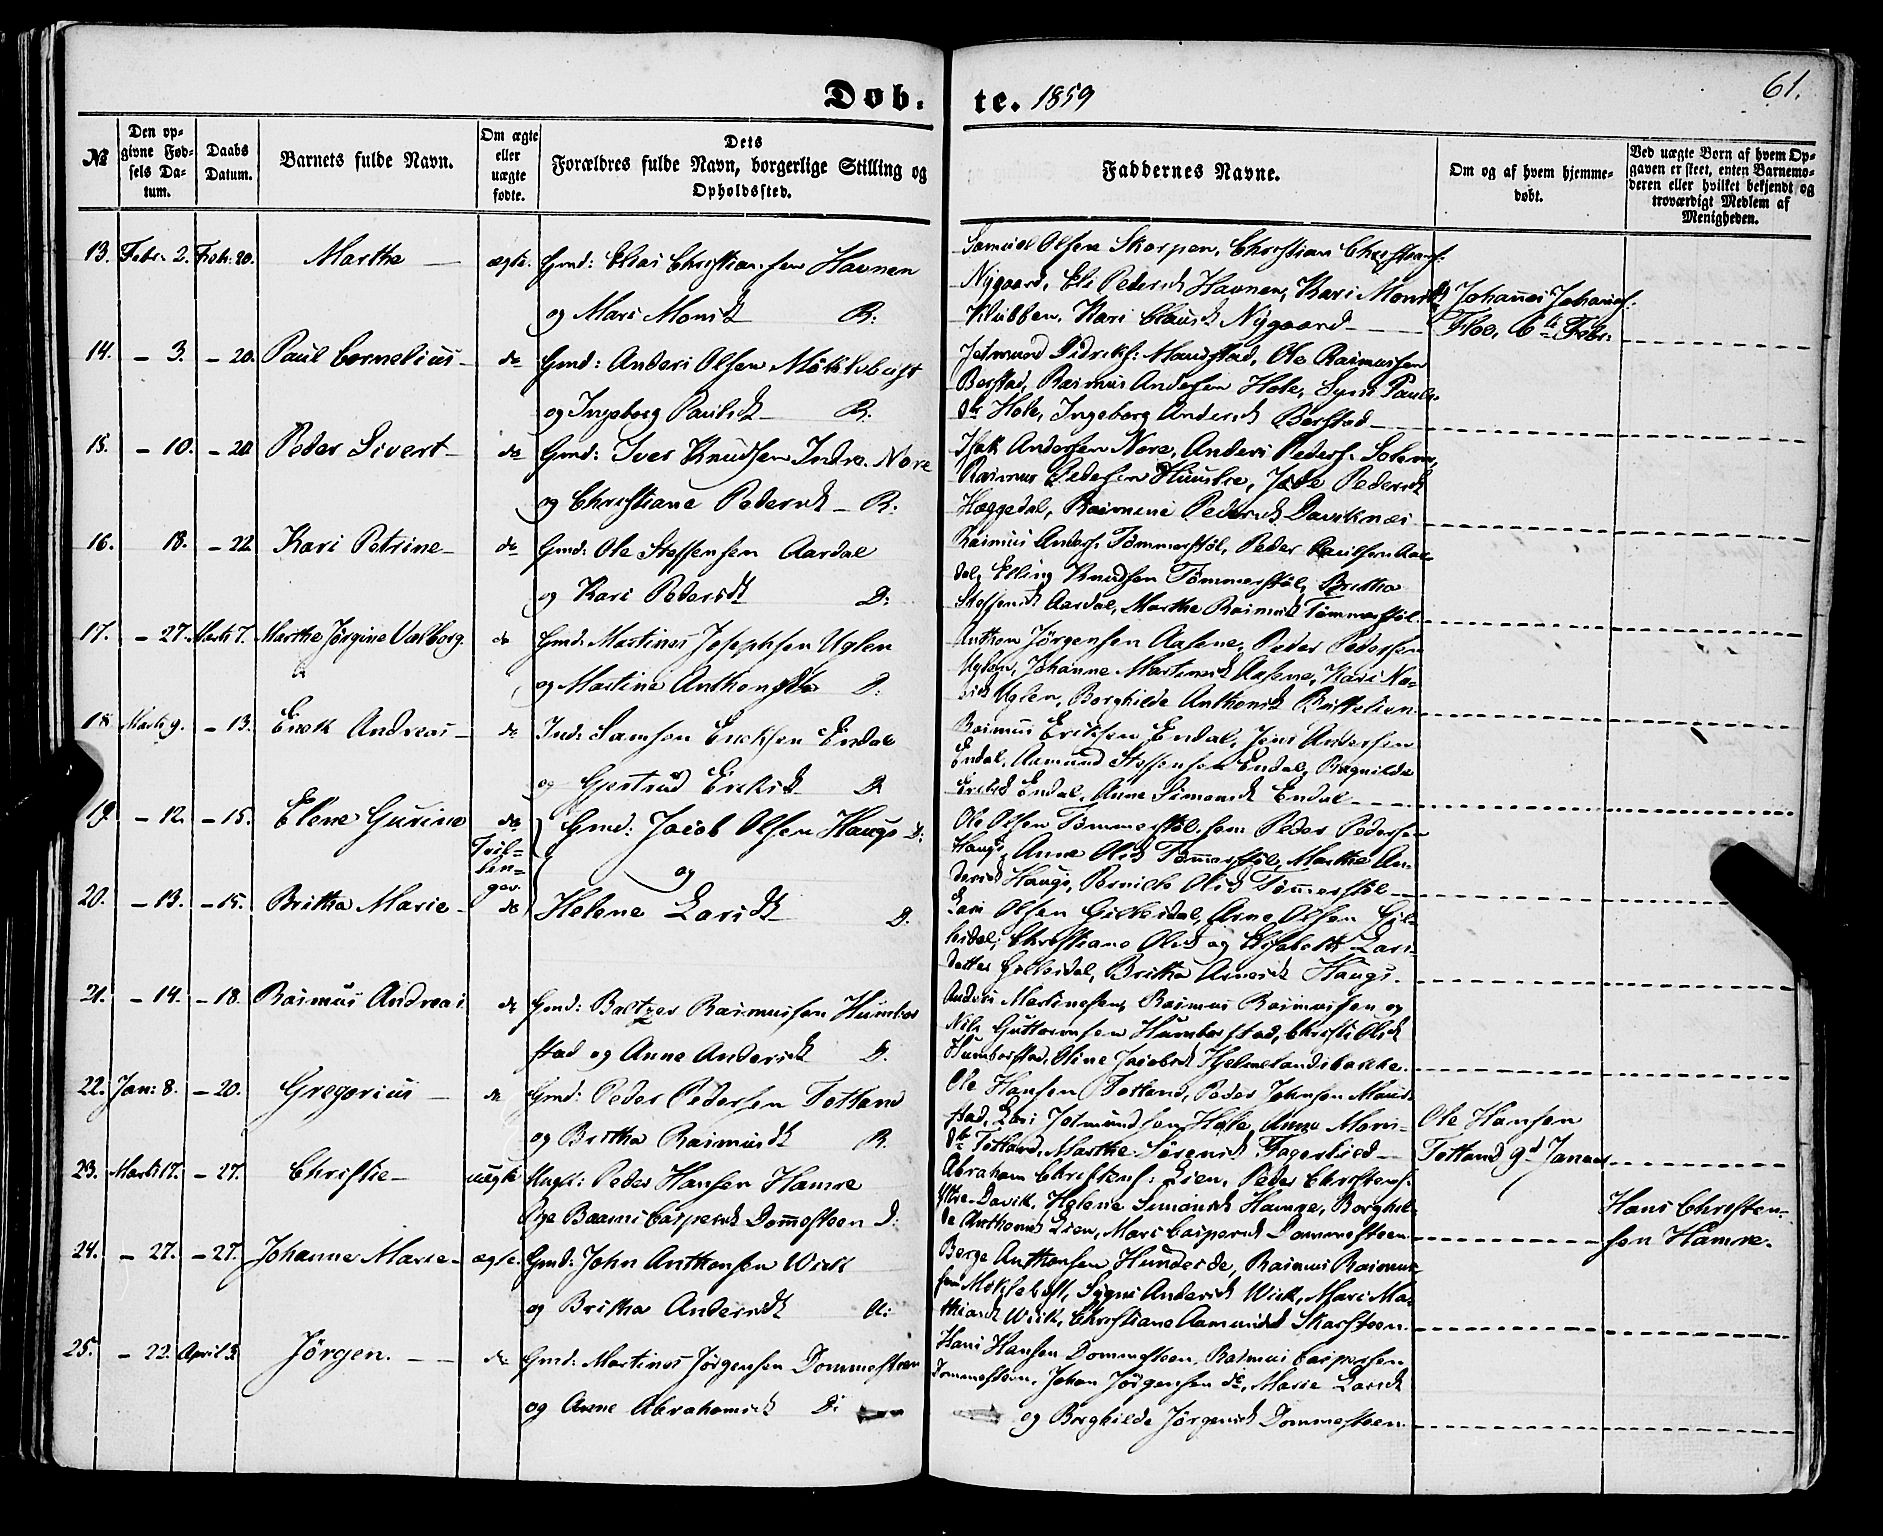 Døb- te. 1859
61.
№
Den opgivne Fødsels Datum.
Daabs Datum.
Barnets fulde Navn.
Om ægte eller uægte fødte.
Dets Forældres fulde Navn, borgerlige Stilling og Opholdssted.
Faddernes Navne.
Om og af hvem hjemmedøbt.
Ved uægte Børn af hvem Opgaven er skeet, enten Barnemoderen eller hvilket bekjendt og troværdigt Medlem af Menigheden.
13. Febr. 2. Febr. 20. Marthe ægte. Gmd: Elias Christiansen Havnen
og Mari Monsdt R:
Samuel Olsen Skorpen, Christian Christians:
Nygaard, Eli Pedersdt Havnen, Kari Monsdt
Klubben, Kari Clausdt Nygaard
Johannes Johannes:
Floe, 6te Febr:
14. – 3. – 20. Paul Cornelius do Gmd: Anders Olsen Möklebust
og Ingeborg Paulsdt R.
Jetmund Didriks: Maurstad, Ole Rasmussen
Berstad, Rasmus Andersen Hole, Synni Pauls-
dtr Hole, Ingeborg Andersdt Berstad
15. – 10. – 20 Peder Sivert do Gmd: Iver Knudsen Indre Nore
og Christiane Pedersdt R.
Isak Andersen Nore, Anders Peders. Solem,
Rasmus Pedersen Huusöe, Pedersdt
Hæggedal, Rasmine Pedersdt Daviknæs
16. 18. – 22 Kari Petrine do Gmd: Ole Steffensen Aardal
og Kari Pedersdt D:
Rasmus Anders. Tömmerstöl, Peder Paulsen Aar-
dal, Elling Knudsen Tömmerstöl, Britha
Steffensdt Aardal, Marthe Rasmusdt Tömmerstöl.
17. – 27. Marts 7. Marthe Jørgine Valborg. do Gmd: Martinus Josephsen Uglen
og Martine Anthonsdtr D:
Anthon Jörgensen Aasene, Peder Pedersen
Uglen, Johanne Martinusdt Aasene, Kari
Uglen, Borghilde Anthonsdt
18 Marts 9. – 13. Erik Andreas do Ind: Samson Eriksen Endal
og Gjertrud Eriksdt D
Rasmus Eriksen Endal, Jens Andersen
Endal, Aamund Steffensen Endal, Ragnilde
Eriksdt Endal, Anne Simonsdt Endal
19. – 12. – 15. Elene Gurine do Gmd: Jacob Olsen Haugs D:
Tvil-
lin-
ger.
og
Ole Olsen Tömmerstöl, Peder Pedersen
Haugs, Anne Olsdt Tömmerstöl, Marthe An-
dersdt Haugs, Olsdt Tömmerstöl
20. – 13. – 15. Britha Marie do Helene Larsdt D.
Lars Olsen Gillesdal, Arne Olsen Gil-
lesdal, Christiane Olsdt og Elisabeth Lars-
datter Gillesdal, Britha Arnesdt Haugs.
21. – 14. – 18. Rasmus Andreas do Gmd: Baltzer Rasmussen Humbor-
stad og Anne Andersdt D.
Anders Martinessen, Rasmus Rasmussen og
Nils Guttormsen Humborstad, Christi Olsdt
Humborstad, Oline Jacobsdt Hjelmelandsbakke.
22. Jan: 8. – 20. Gregorius do Gmd: Peder Pedersen Totland
og Britha Rasmusdt R.
Ole Hansen Totland, Peder Johnsen Maur-
stad, Lars Jetmundsen Hole, Anne Mons-
dtr Totland, Marthe Sörensdt Fagerlied
Ole Hansen
Totland 9de Januar
23. Marts 17. – 27. Christie uægte Ungk: Peder Hansen Hamre
Pige Caspersdt Dommesteen D.
Abraham Christens: Lien, Peder Christens:
Ytre-Davik, Helene Simonsdt Hamre, Borghil-
de Anthonsdt Lien, Mari Caspersdt Dommesteen
Hans Christen-
sen Hamre.
24. – 27. – 27. Johanne Marie ægte Gmd: John Anthonsen Wiik
og Britha Andersdt
Berge Anthonsen Hundeide, Rasmus Rasmus-
sen Möklebust, Sygni Andersdt Wiik, Mari Ma-
thiasdt Wiik, Christiane Aamundsdt Skarsteen.
25. – 22. April 3. Jørgen. do Gmd: Martinus Jörgensen Dommesteen
og Anne Abrahamsdt D:
Hans Hansen Dommesteen, Rasmus Caspersen
Dommesteen, Johan Jörgensen do, Marie Larsdt
og Borghilde Jörgensdt Dommesteen.